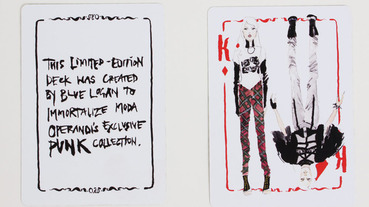 THIS LIMITED-EDITION
DECK WAS CREATED
BY BLUE LOGAN TO
IMMORTALIZE MODA
OPERANDI'S EXCLUSIVE
PUNK COLLECTION.
K
K